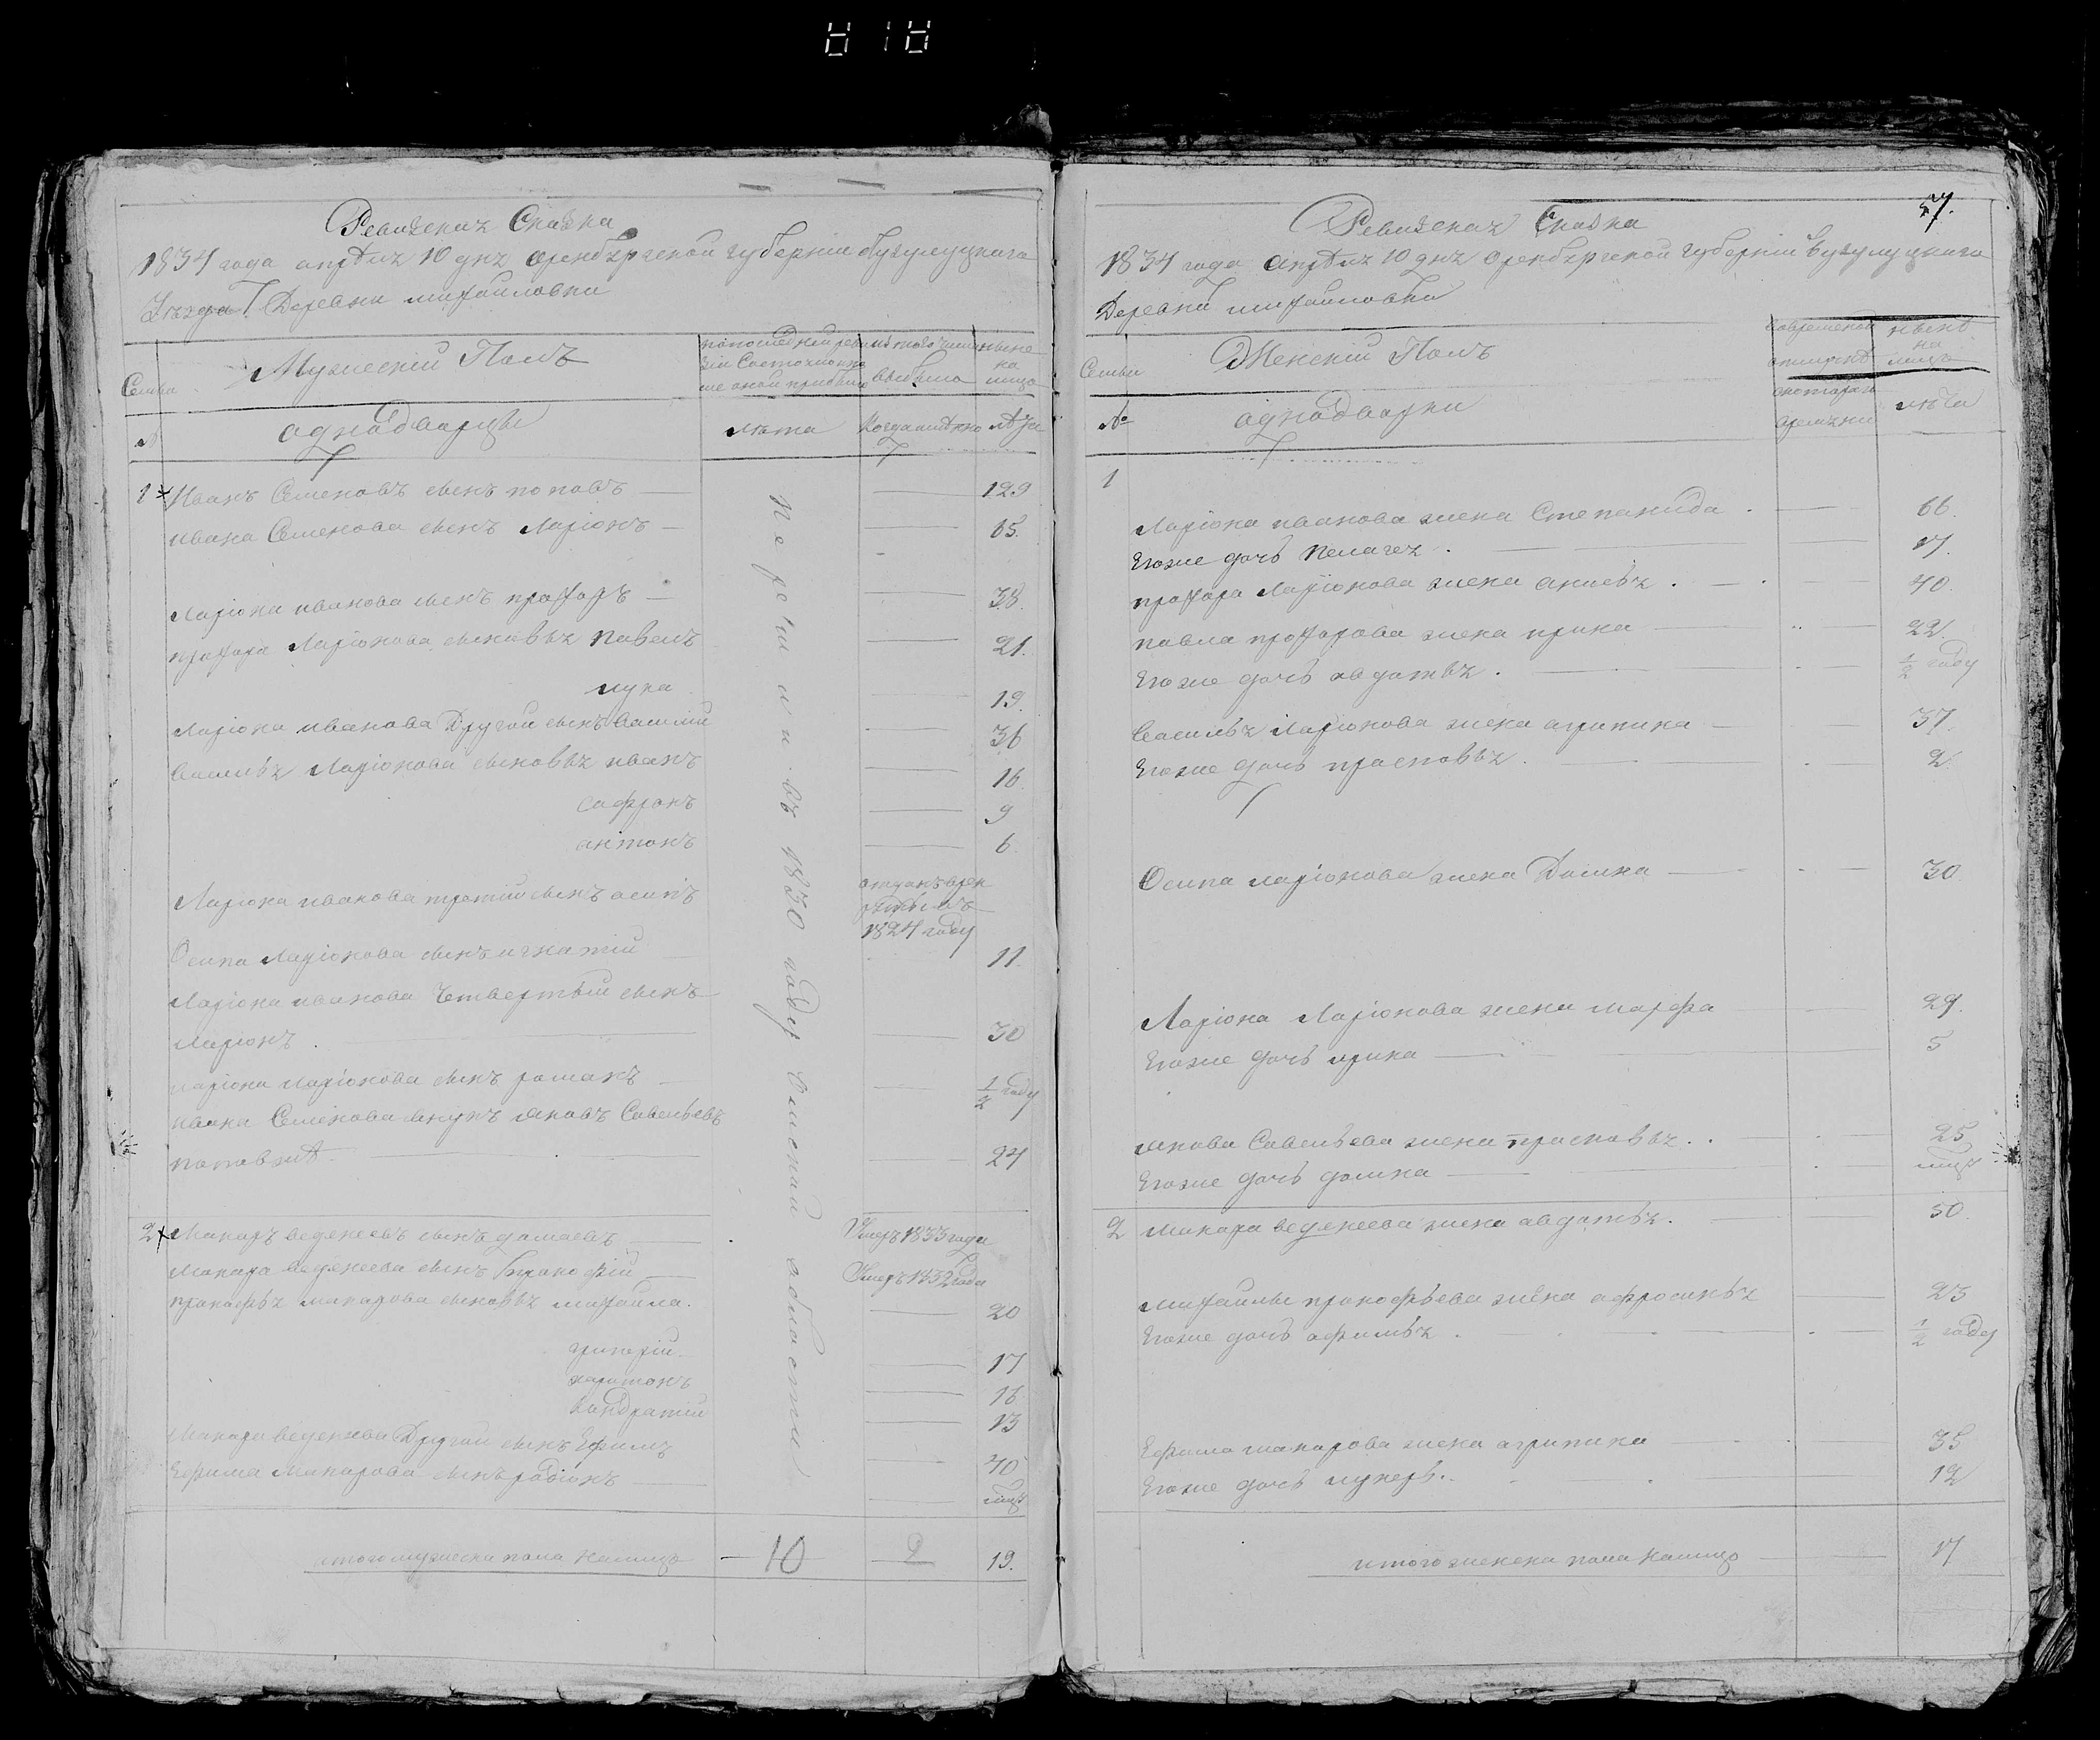 Ревизская Сказка
1834 года апреля 10 дня оренбургской губернии бузулуцкаго
Уезда Деревни михайловки
Семьи
Мужеский Полъ
выбыло
ныне на лицо
№
аднадварцы
лета
Когда имянно
лета
1 Иванъ Семеновъ сынъ поповъ 129
ивана Семенова сынъ Ларіонъ 65.
Ларіона иванова сынъ прохоръ 38.
прохора Ларіонова сыновья павелъ 21.
лука 19.
Ларіона иванова Другой сынъ василий 36
василья Ларіонова сыновья иванъ 16.
сафронъ 9
антонъ 6
Ларіона иванова третий сынъ осипъ
1824 году
Осипа Ларіонова сынъ игнатий 11.
Ларіона иванова Четвертый сынъ
Ларіонъ 30
ларіона ларіонова сынъ романъ 1/2 году
ивана Семенова внукъ яковъ Савельевъ
24
Перешли въ 1830 году
2 Макаръ веденеевъ сынъ Умеръ 1833 года
Макара веденеева сынъ прокофий Умеръ 1832 года
прокофья макарова сыновья михайла. 20
григорий 17
харитонъ 16
кандратий 13
Макара веденеева Другой сынъ Ефимъ 40
Ефима Макарова сынъ радіонъ
итого мужеска пола налицо 10 2 19.
57.
Ревизская Сказка
1834 года апреля 10 дня оренбургской губернии бузулуцкаго
Деревни михайловки
Семьи
Женский Полъ
ныне на лицо
№
аднадворки
лета
1
Ларіона иванова жена Степанида 66.
Егоже дочь пелагея 17.
прохора Ларіонова жена анисья 40.
павла прохорова жена ирина 22.
Егоже дочь авдотья 1/2 году
василья Ларіонова жена агрипина 37.
Егоже дочь прасковья 2
Осипа ларіонова жена Домна 30.
Ларіона Ларіонова жена марфа 29.
Егоже дочь ирина 5
якова Савельева жена прасковья 25
Егоже дочь домна
2 Макара веденеева жена авдотья 50.
михайлы прокофьева жена афросинья 23
Егоже дочь афимья 1/2 году
Ефима макарова жена агрипина 35
Егоже дочь лукерья 12
итого женска пола налицо 17